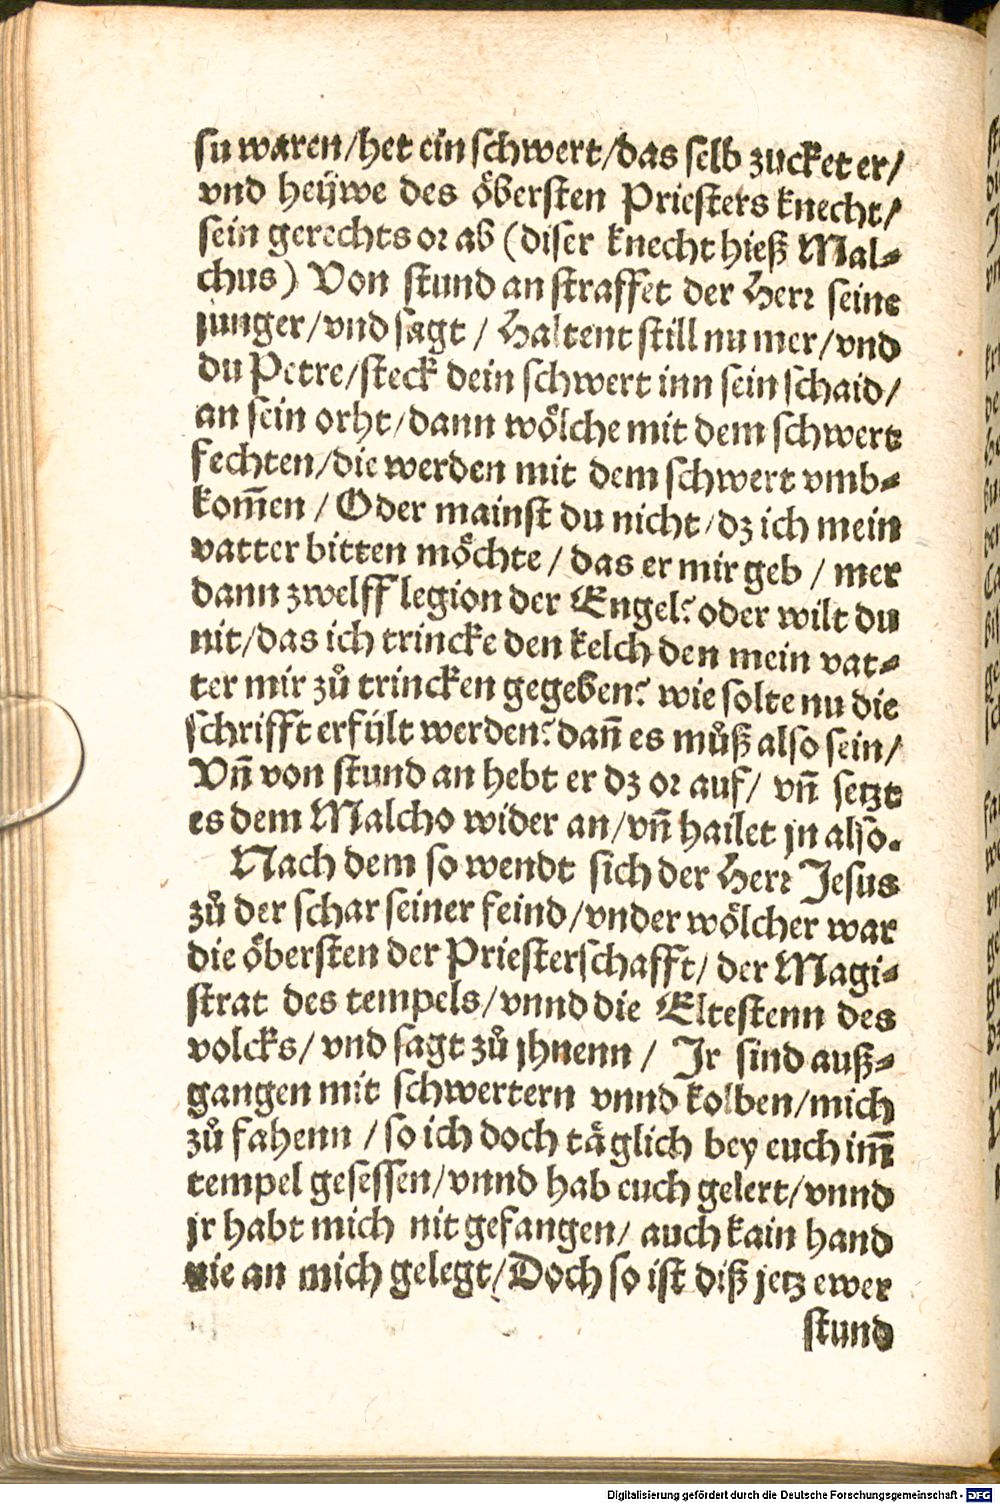 su waren/het ein schwert/das selb zucket er/
vnd heÿwe des öbersten Priesters knecht/
sein gerechts or ab (diser knecht hieß Mal⸗
chus) Von stund an straffet der Herr seine
junger/vnd sagt / Haltent still nu mer/vnd
du Petre/steck dein schwert inn sein schaid/
an sein orht/dann wölche mit dem schwert
fechten/die werden mit dem schwert vmb⸗
kom̄en / Oder mainst du nicht/dz ich mein
vatter bitten möchte / das er mir geb / mer
dann zwelff legion der Engel? oder wilt du
nit/das ich trincke den kelch den mein vat⸗
ter mir zů trincken gegeben? wie solte nu die
schrifft erfÿlt werden? dañ es můß also sein/
Vñ von stund an hebt er dz or auf/ vñ setzt
es dem Malcho wider an/vñ hailet jn also.
Nach dem so wendt sich der Herr Jesus
zů der schar seiner feind/vnder wölcher war
die öbersten der Priesterschafft/ der Magi⸗
strat des tempels/vnnd die Eltestenn des
volcks/ vnd sagt zů jhnenn / Jr sind auß⸗
gangen mit schwertern vnnd kolben/mich
zů fahenn / so ich doch täglich bey euch im̄
tempel gesessen/vnnd hab euch gelert/vnnd
jr habt mich nit gefangen/ auch kain hand
nie an mich gelegt/Doch so ist diß jetz ewer
stund
Digitalisierung gefördert durch die Deutsche Forschungsgemeinschaft - DFG